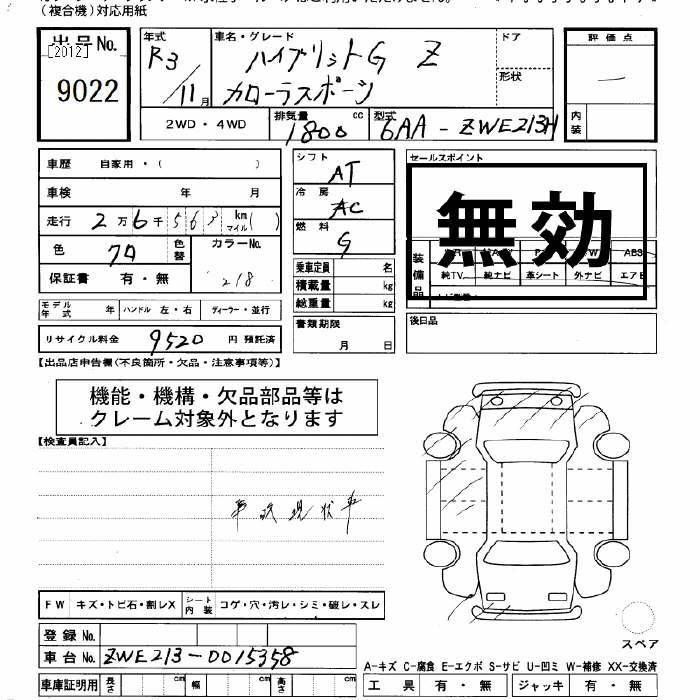 (複合機)対応用紙
出品No.
[2012]
9022
年式
R3
/11月
車名・グレード
ハイブリットG Z
カローラスポーツ
ドア
形状
評価点
内装
2WD・4WD
排気量
1800
cc
型式
6AA-ZWE213H
車歴 自家用・( )
車検 年 月
走行 2万6千563 km マイル( )
色 クロ 色替 カラーNo. 218
保証書 有・無
シフト
AT
冷房
AC
燃料
G
乗車定員 名
積載量 kg
総重量 kg
書類期限
月 日
セールスポイント
無効
装備品
ABS
純TV 純ナビ 革シート 外ナビ エアB
後日品
モデル年式 年 ハンドル 左・右 ディーラー・並行
リサイクル料金 9520 円 預託済
【出品店申告欄(不良箇所・欠品・注意事項等)】
機能・機構・欠品部品等は
クレーム対象外となります
【検査員記入】
事故現状車
FW キズ・トビ石・割レX シート内装 コゲ・穴・汚レ・シミ・破レ・スレ
登録No.
車台No. ZWE213-0015358
車庫証明用 長さ cm 幅 cm 高さ cm
スペア
A-キズ C-腐食 E-エクボ S-サビ U-凹ミ W-補修 XX-交換済
工具 有・無 ジャッキ 有・無